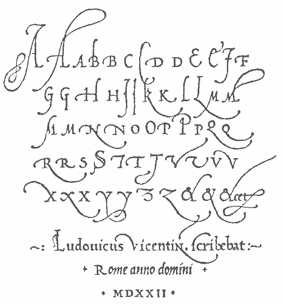 A A A B B C C D D E E F F
G G H H I J K K L L M M
M M N N N O O P P P Q Q
R R S S T T V V V V V
X X X Y Y Z Z & & &
~: Ludovicus Vicentin. scribebat :~
Rome anno domini
MDXXII